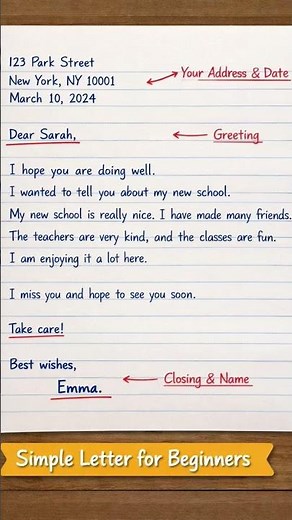 123 Park Street
New York, NY 10001
Your Address & Date
March 10, 2024
Dear Sarah,
Greeting
I hope you are doing well.
I wanted to tell you about my new school.
My new school is really nice. I have made many friends.
The teachers are very kind, and the classes are fun.
I am enjoying it a lot here.
I miss you and hope to see you soon.
Take care!
Best wishes,
Emma.
Closing & Name
Simple Letter for Beginners